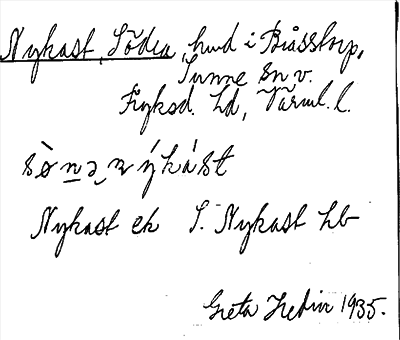 Nykast, Södra, hmd i Blåsstorp,
Sunne sn v.
Fryksd. hd, Värml. l.
sø̀nə nýkást
Nykast ek S. Nykast hb
Greta Hedin 1935.